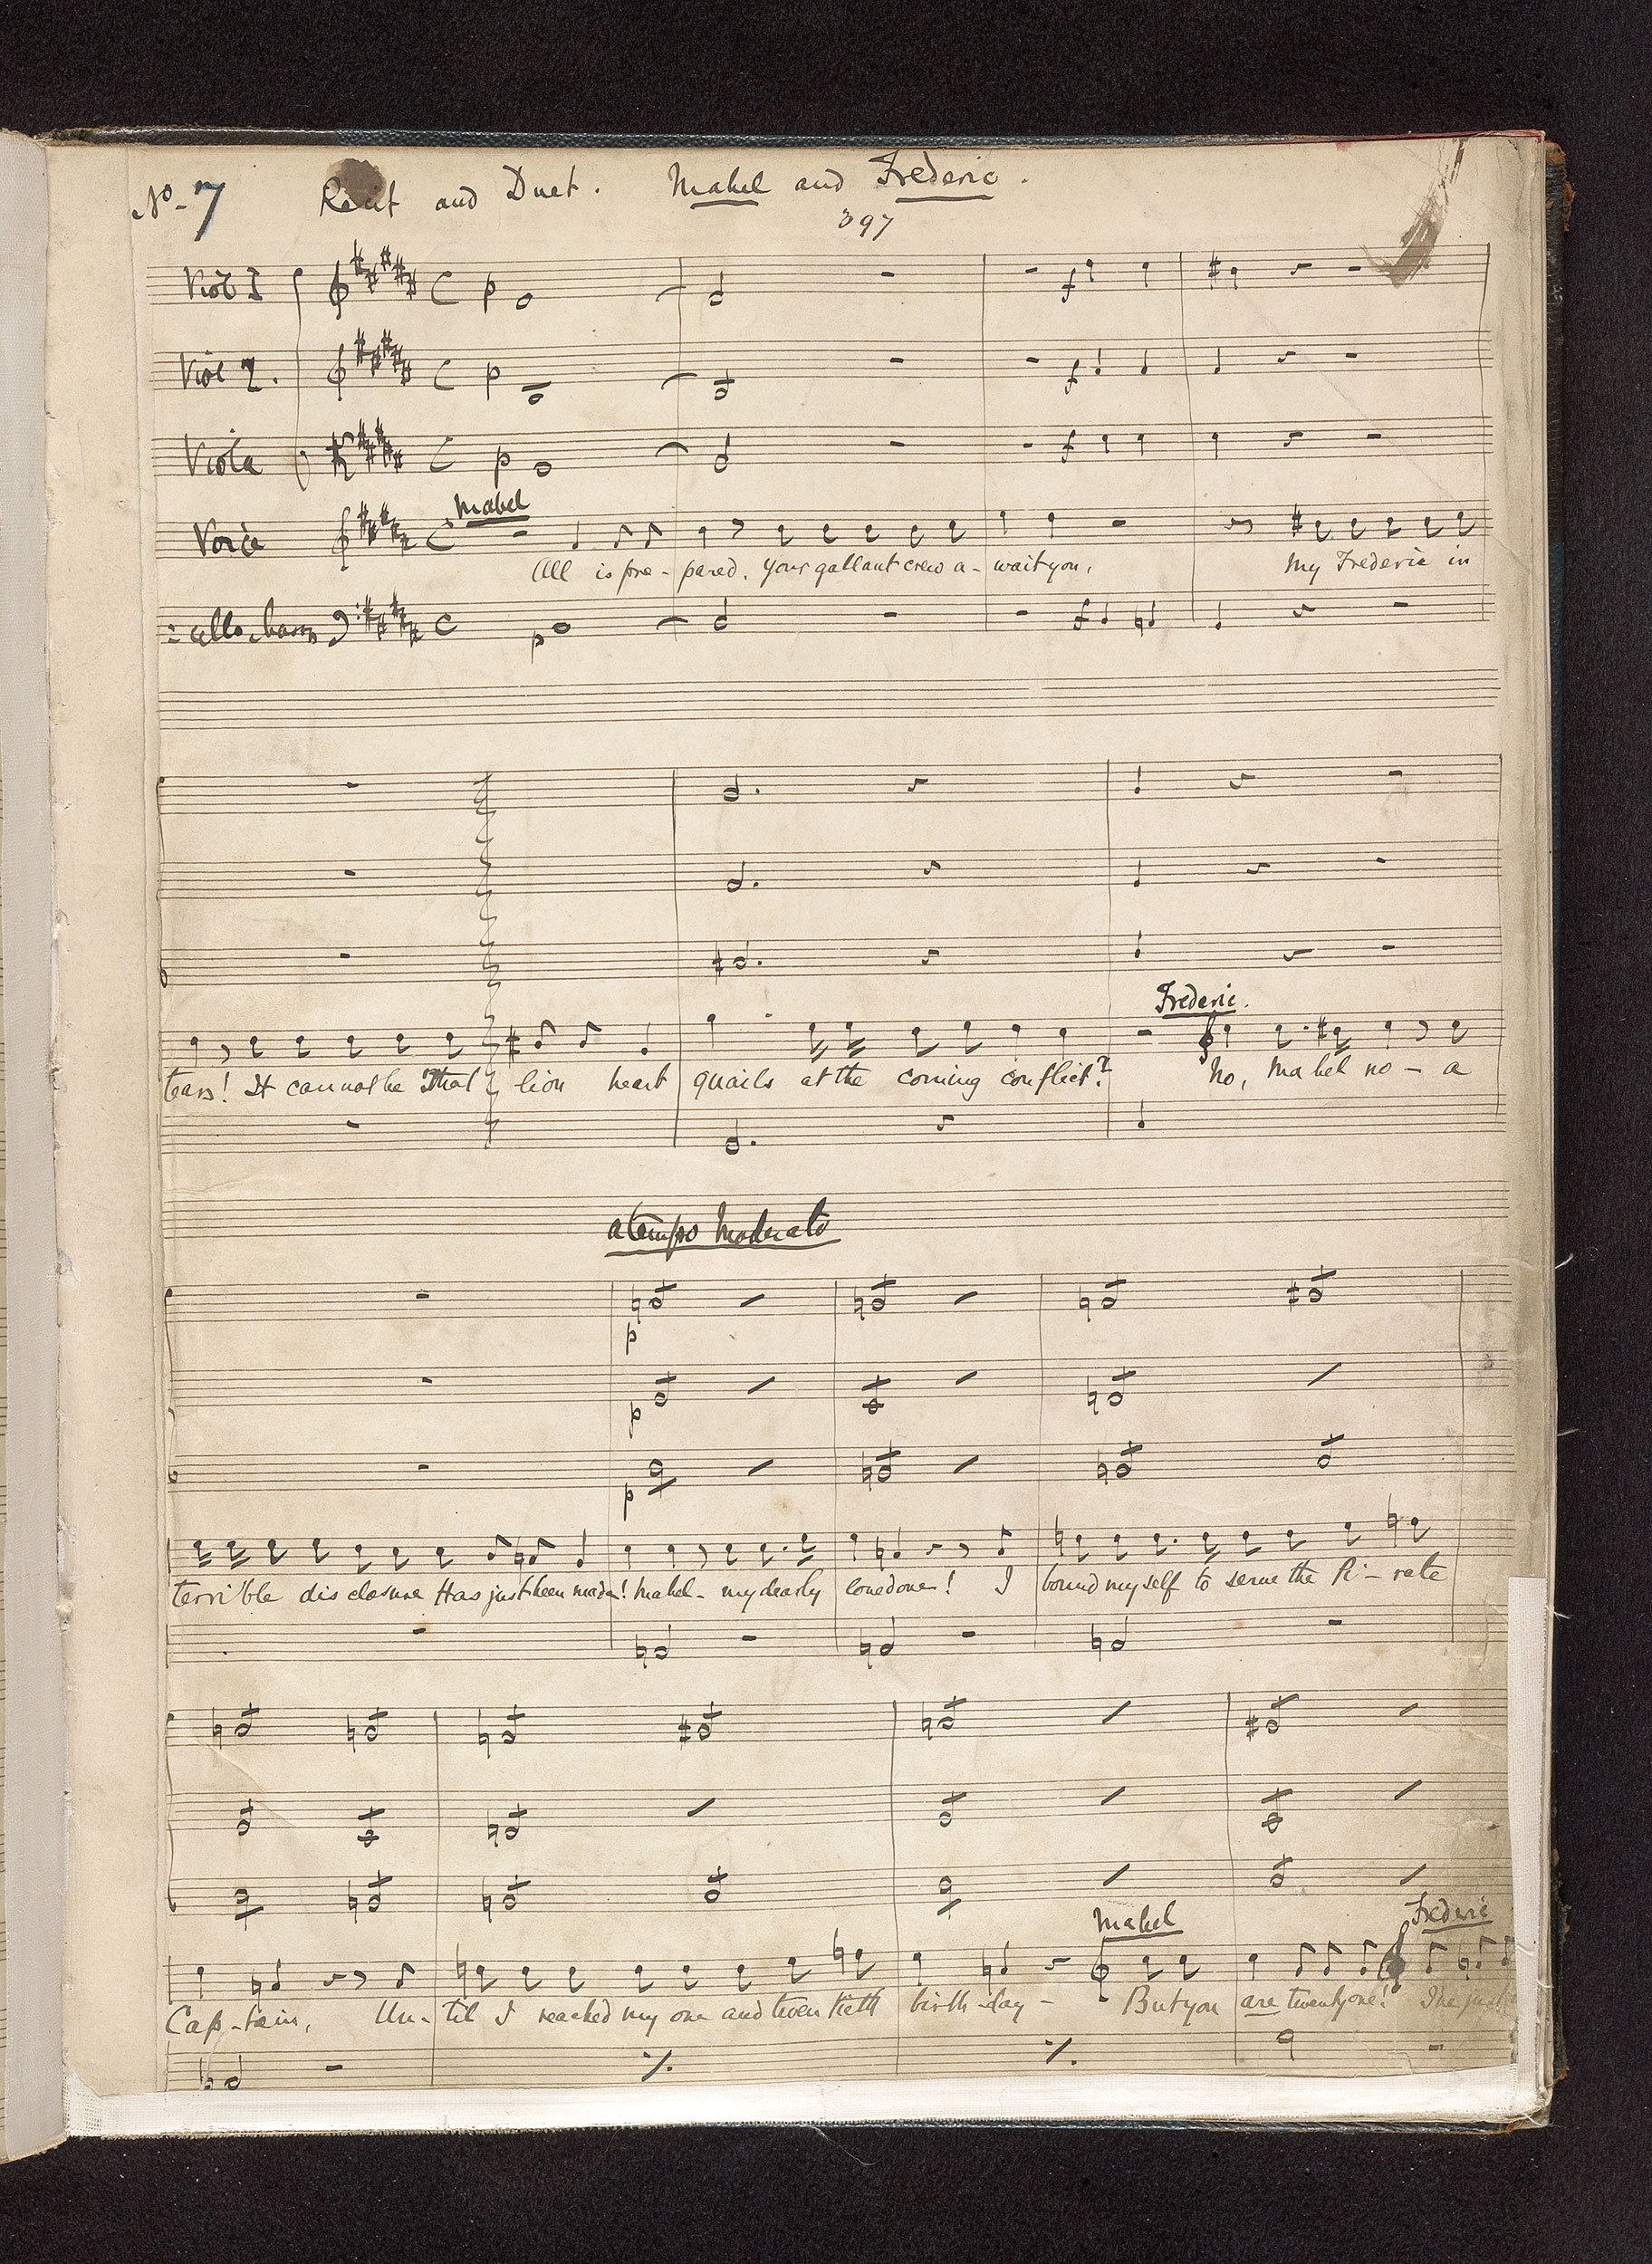 No. 7 Recit and Duet. Mabel and Frederic.
397
Viol I
p
f
Viol 2.
p
f
Viola
p
f
Mabel
Voice
All is pre - pared, your gallant crew a - wait you, My Frederic in
cello, basso
p
f
Frederic.
tears! It cannot be That lion heart quails at the coming conflict? No, Mabel no - a
a tempo Moderato
p
p
p
terrible disclosure Has just been made! Mabel - my dearly loved one! I bound myself to serve the Pi - rate
Mabel Frederic
Cap - tain, Un - til I reached my one and twentieth birth - day - But you are twenty one! I've just